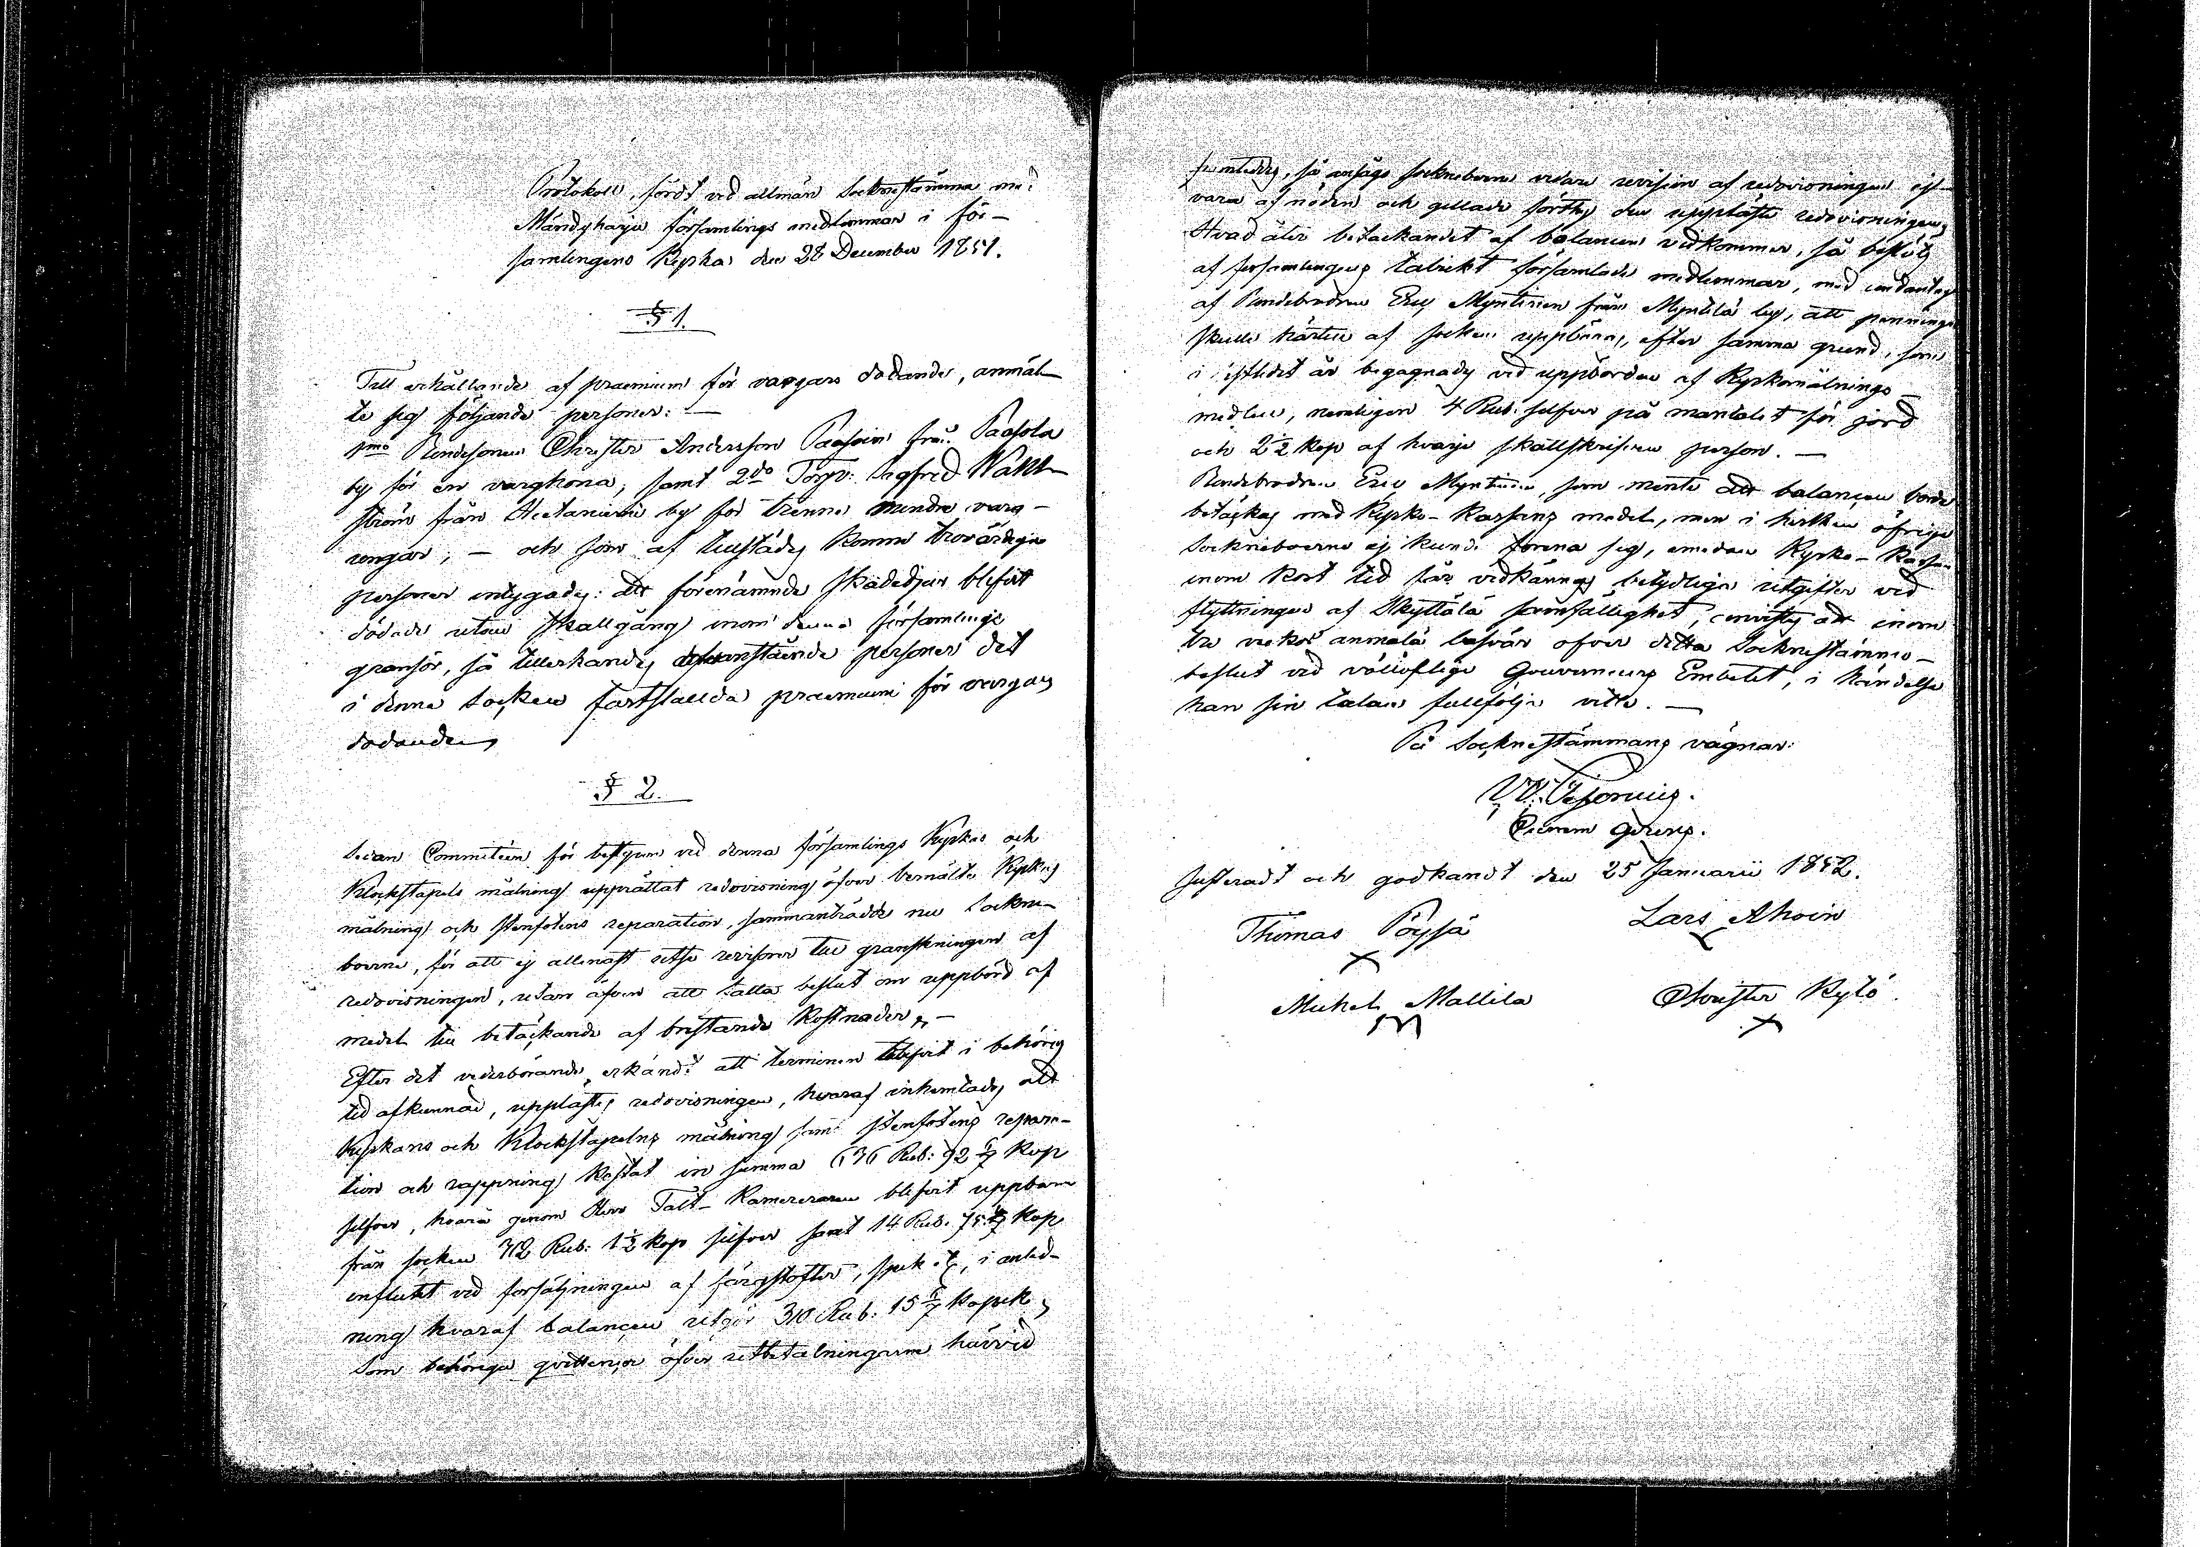 Protokoll, fördt vid allmän Sockenstämma med
Mändyharju församlings medlemmar i för-
samlingens Kyrka den 28 December 1851.
§ 1.
Till erhållande af præmium för vargars dödande, anmäl-
te sig följande personer: —
1mo Bondesonen Christer Andersson Paasoin från Paasola
by för en varghona, samt 2do Torp: Sigfred Wahl-
ström från by för trenne mindre varg-
ungar; — och som af tillstädes komne trovärdiga
personer intygades: att förenämnde skadedjur blifvit
dödade utom skallgång inom denna församlings
gränsor, så tillerkändes ofvanstående personer det
i denna Socken fastställda præmium för vargars
dödande.
§ 2.
Sedan Committéen för bestyren vid denna församlings Kyrkas och
Klockstapels målning upprättat redovisning öfver bemälte Kyrkas
målning och stenfotens reparation, sammanträdde nu Sockne-
boerne, för att ej allenast utse revisorer till granskningen af
redovisningen, utan äfven att fatta beslut om uppbörd af
medel till betäckande af bristande kostnader. —
Efter det vederbörande erkändt att terminen blifvit i behörig
tid afkunnad, upplästes redovisningen, hvaraf inhemtades att
Kyrkans och Klockstapelns målning samt stenfotens repara-
tion och rappning kostat in summa 636 Rub: 92 6/7 Kop
silfver, hvaraf genom Herr Fält-Kamereraren blifvit uppburne
från socken 312 Rub: 1 1/2 kop silfver samt 14 Rub. Kop
influtit vid försäljningen af färgstofter, spik etc, i anled-
ning hvaraf balancen utgör 310 Rub: 15 6/7 kopek,
Som behöriga qvittencer öfver utbetalningarne härvid
framteddes, så ansågo sockneboerne vidare revision af redovisningen ej
vara af nöden och gillade förthy den upplästa redovisningen;
Hvad åter betäckandet af balancen vidkommer, så beslöts
af församlingens talrikt församlade medlemmar, med undantag
af Bondebrodren Eric Myntinen från Myntilä by, att penningar
skulle härtill af socken uppbäras, efter samma grund, som
i istidet är begagnades vid uppbörden af Kyrkomålnings-
medlen, nemligen 4 Rub: silfver på mantalet för jord
och 2 1/2 kop af hvarje skattskrifven person. —
Bondebrodren Eric Myntinen, som mente att balancen borde
betäckas med Kyrko-Kassans medel, men i hvilken öfriga
Sockneboerne ej kunde förena sig, emedan Kyrko-Kassan
inom kort tid får vidkännas betydliga utgifter vid
flyttningen af Skyttälä samfällighet, anvistes att inom
tre veckor anmäla besvär öfver detta Sockenstämmo-
beslut vid vällofliga Gouverneurs Embetet, i händelse
han sin talan fullfölja ville. —
På Sockenstämmans vägnar:
Justeradt och godkändt den 25 Januarii 1852.
Thomas Pöysä
Lars Ahoin
Michel Mallila
Christer Kytö